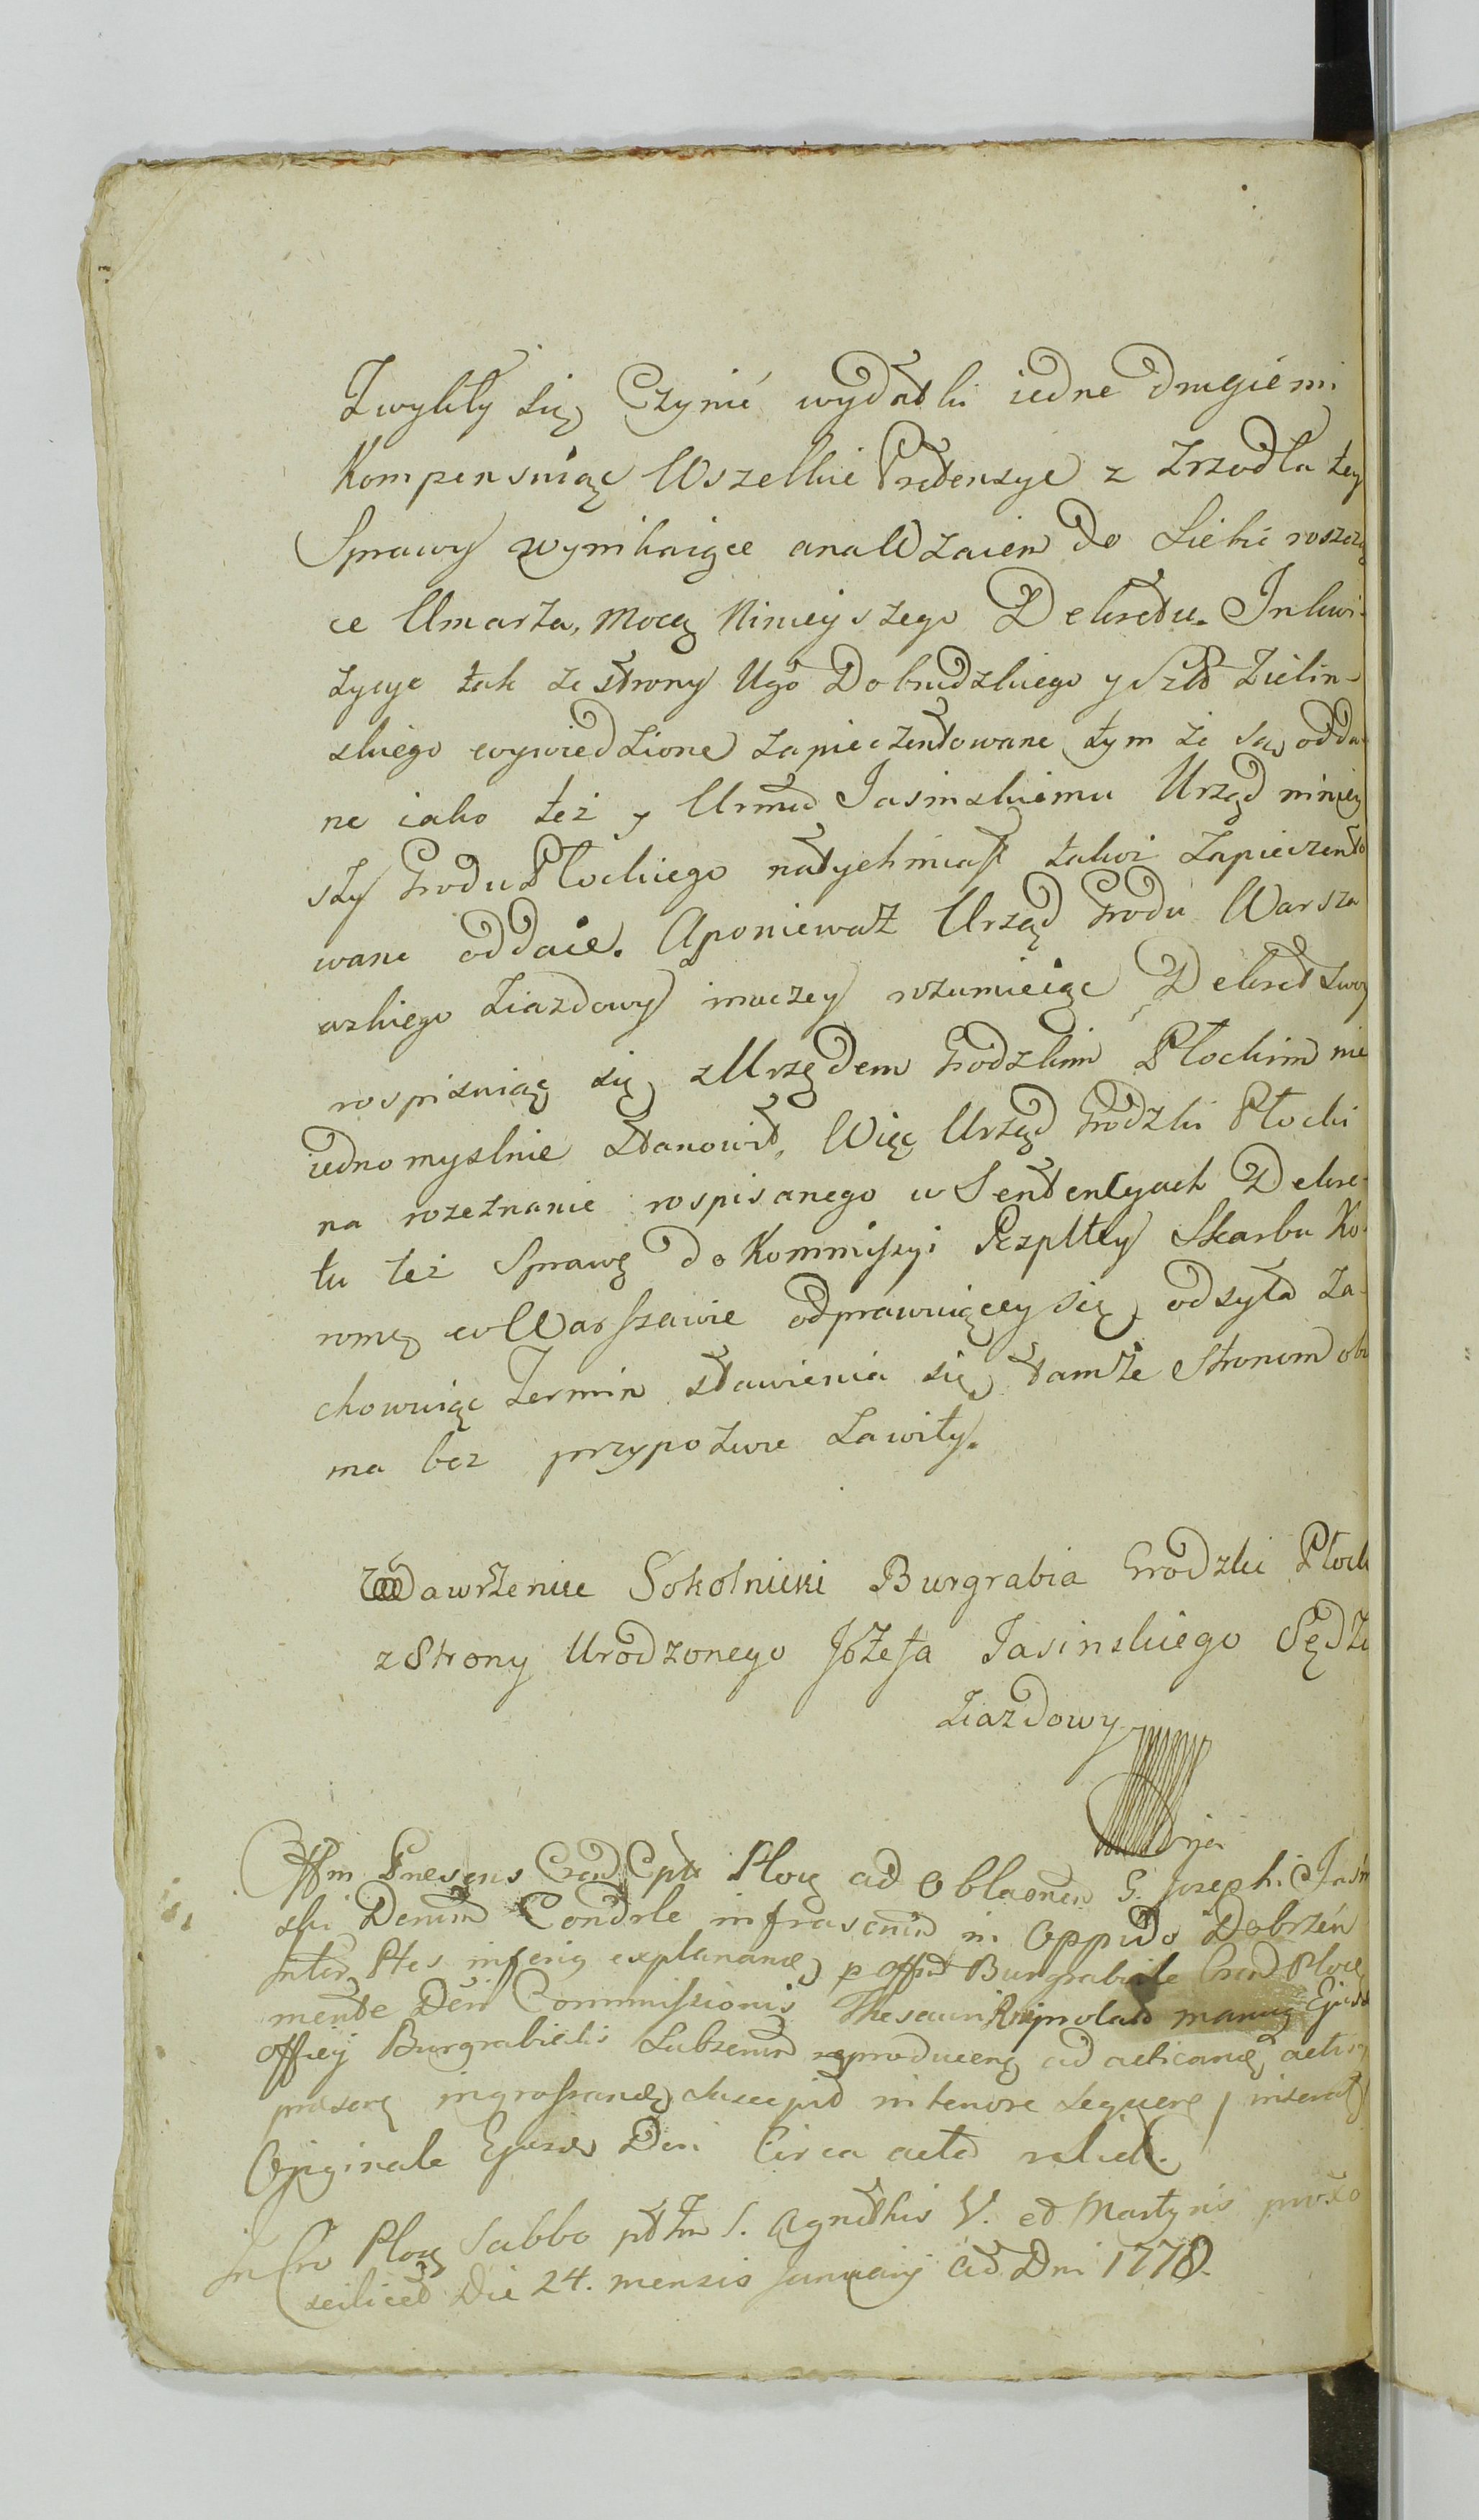 Zwykły się Czynić wydatki iedne drugiemi
Kompensuiąc Wszelkie Pretensye z Zrzodła tey
Sprawy wynikaiące anaWzaiem do Siebie roszczą
ce Umarza, Mocą Ninieyszego Dekretu. Inkwi-
zycye tak ze strony Ugo Dobrudzkiego y Szlo Zielin-
skiego wywiedzione zapieczentowane tym że są odda
ne iako też y Urmu Jasinskiemu Urząd niniey
szy Grodu Płockiego natychmiast takoż zapieczento
wane oddaie. Aponieważ Urząd Grodu Warsza
wskiego Ziazdowy inaczey rozumieiąc Dekret swoy
rospisuiąc się zUrzędem Grodzkim Płockim nie
iednomyslnie stanowił, Więc Urząd Grodzki Płocki
na rozeznanie rospisanego w Sentencyach Dekre-
tu też Sprawę do Kommissyi Rzpltey Skarbu Ko-
ronnę w Warszawie odprawuiącey się odsyła za-
chowuiąc Termin stawienia się tamże Stronom obu
ma bez przypozwu Zawity.
Wawrzeniec Sokolnicki Burgrabia Grodzki Płock
z Strony Urodzonego Józefa Jasinskiego Sędzi
Ziazdowy
Offm Pnesens Crend Cptr Plocz ad Oblaonem G. Josephi Jasin
ski Denum Condrle infrascrim in Oppido Dobrzén
Inter Ptes inferig explanand p Offid Burgrabiale Cren Plocen
mente Dēn Commissionis Thesauri Regnolad manug Ejusd
Officij Burgrabialis Subscrium reproducens ad acticand actis
presens ingrossand suscepit in tenore sequen / inserat
Originale Ejusdem Den Circa acta relict.
In Cro Plocen Sabbo pst Fm S. Agnethis V. et Martyris proxo
scilicet Die 24. mensis Januarij Ad Dni 1778.